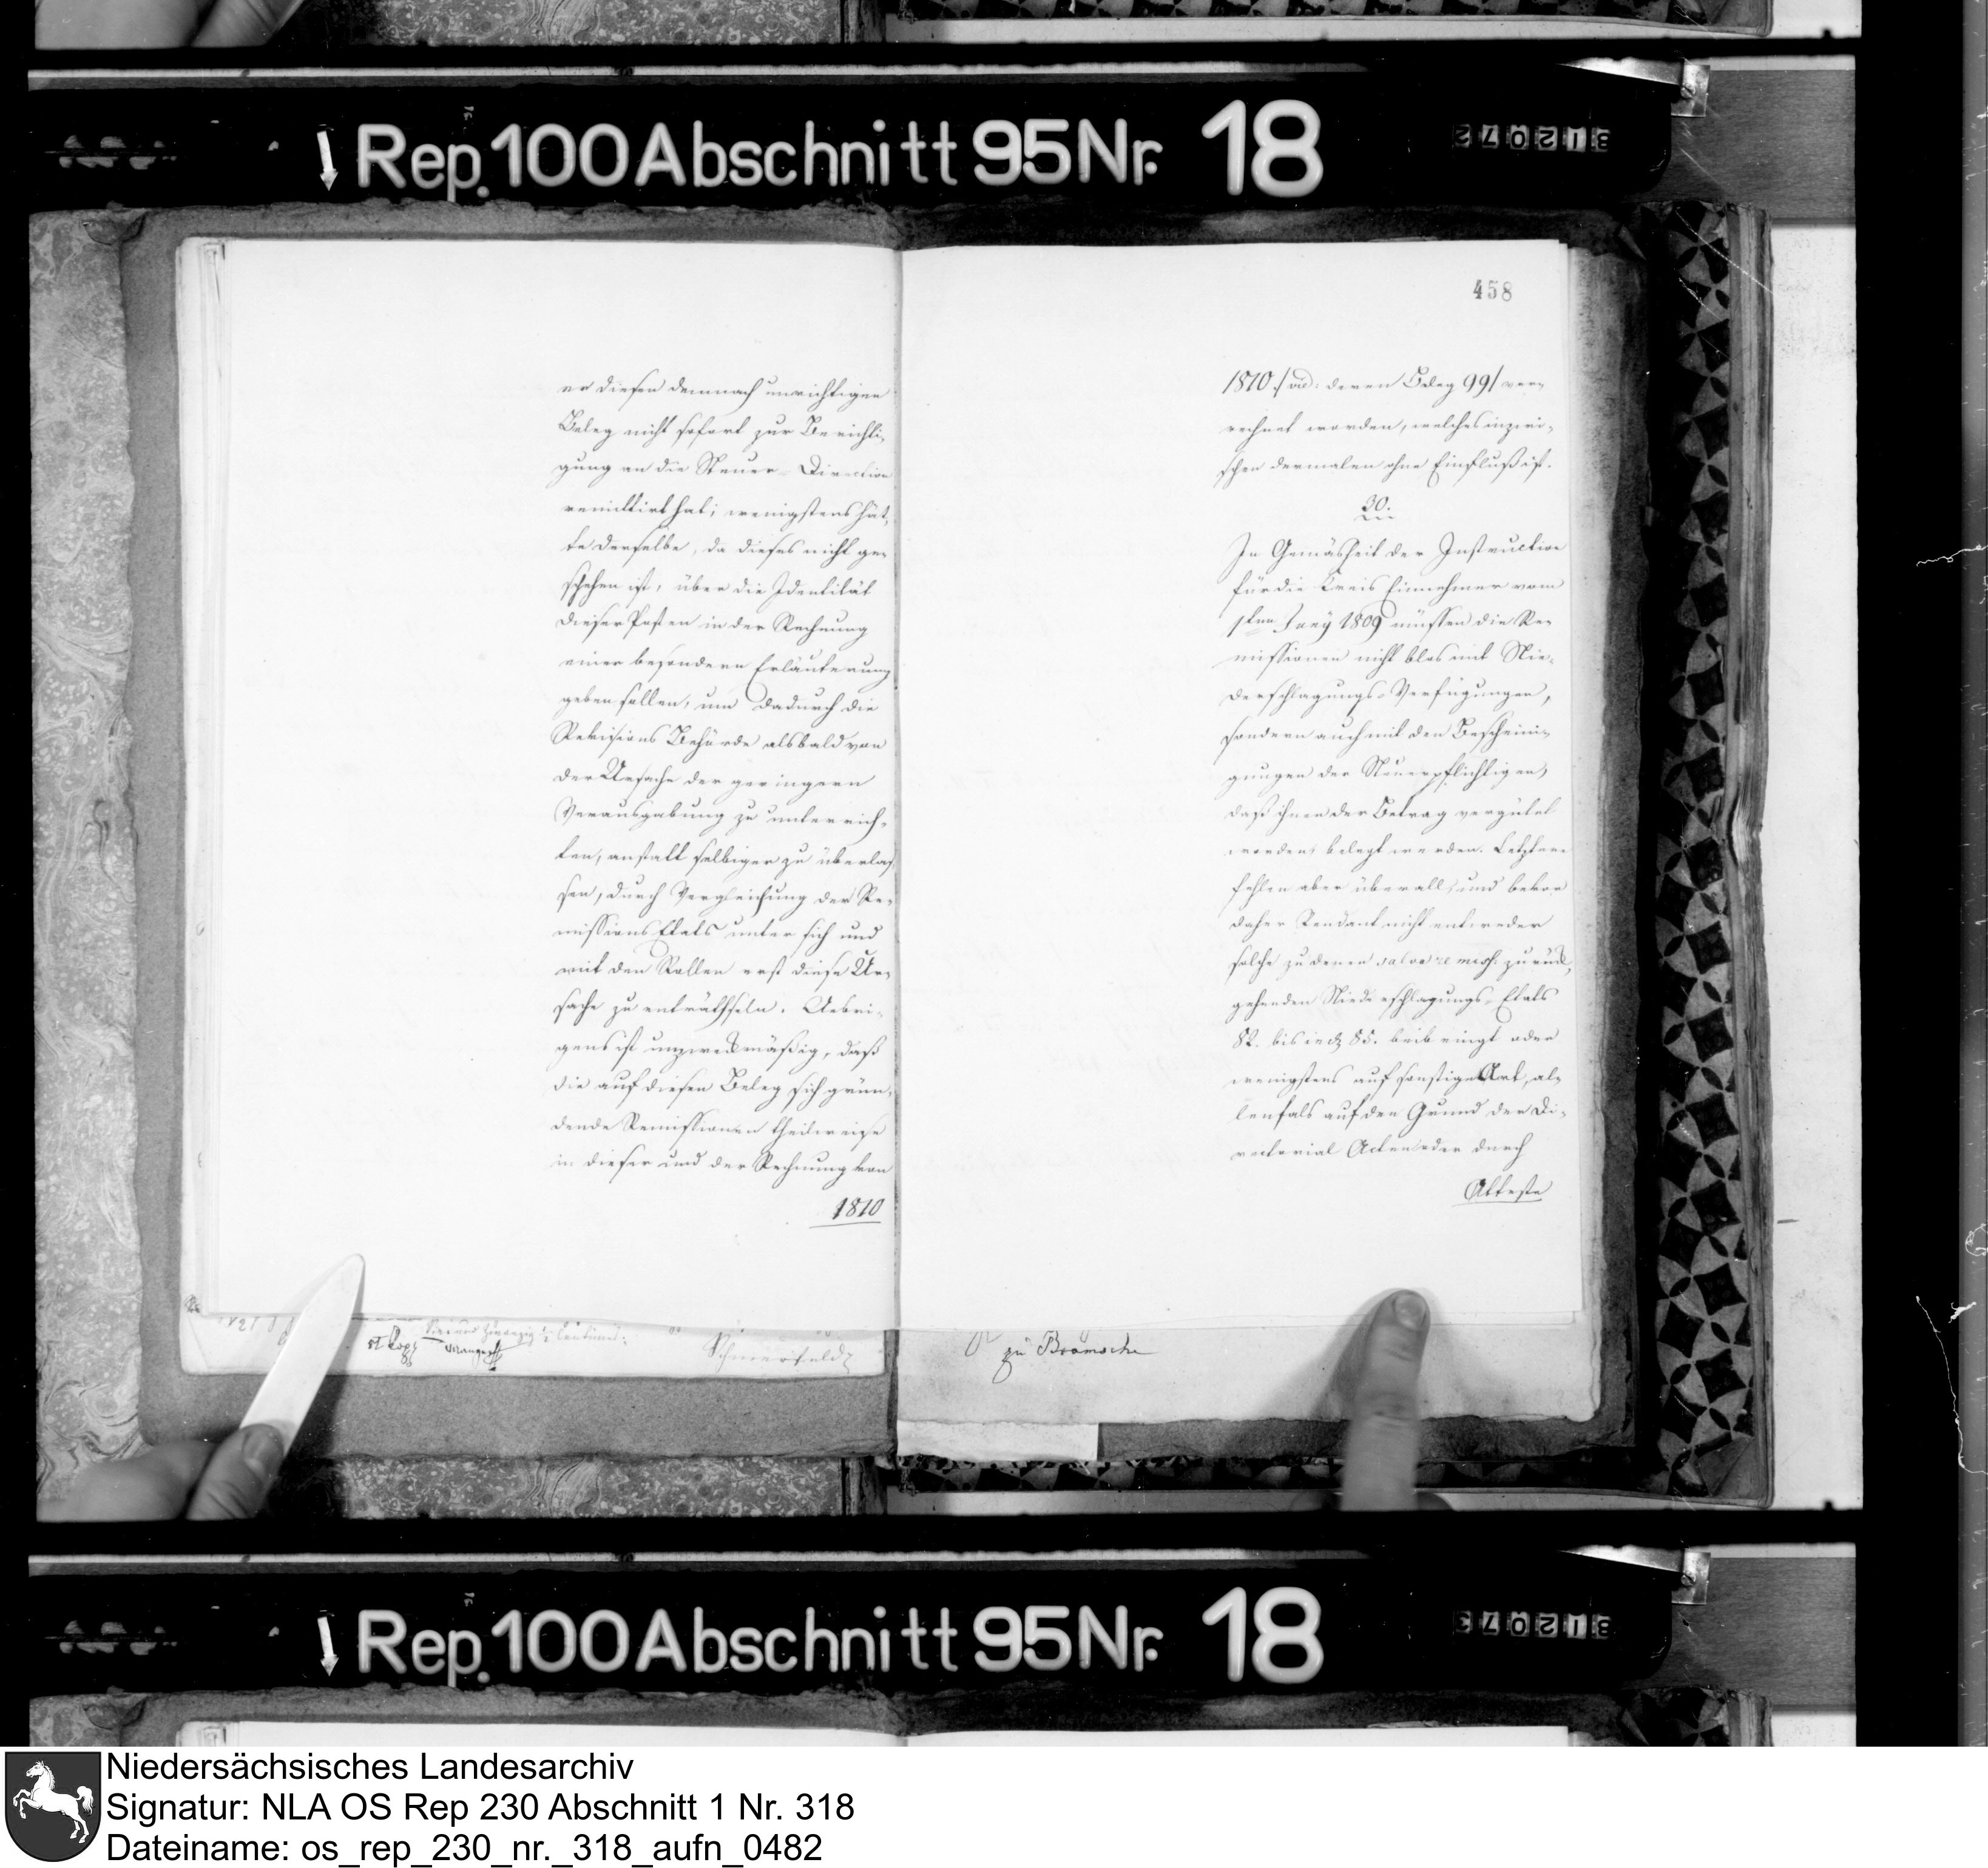 Rep. 100 Abschnitt 95 Nr. 18
312072
458
er diesen demnach unrichtigen
Beleg nicht sofort zur Berichti,
gung an die Steuer-Direction
remittirt hat; wenigstens hät,
te derselbe, da dieses nicht ge,
schehen ist, über die Identität
dieser Posten in der Rechnung
einer besondern Erläuterung
geben sollen, um dadurch die
Revisions Behörde alsbald von
der Ursache der geringern
Verausgabung zu unterrich,
ten, anstatt selbiger zu überlas
sen, durch Vergleichung der Re,
missions Etats unter sich und
mit den Rollen erst diese Ur,
sache zu enträthseln. Uebri,
gens ist unzweckmäßig, daß
die auf diesen Beleg sich grün,
dende Remissionen theilweise
in dieser und der Rechnung von
1810
1810 /: vid: deren Beleg 99 / ver,
rechnet worden, welches inzwi,
schen dermalen ohne Einfluß ist.
30.
In Gemäsheit der Instruction
für die Kreis Einnehmer vom
1ten Juny 1809 müssen die Re,
missionen nicht blos mit Nie,
derschlagungs-Verfügungen,
sondern auch mit den Bescheini,
gungen der Steuerpflichtigen,
daß ihnen der Betrag vergütet
worden, belegt werden. Letztere
fehlen aber überall, und bevor
daher Rendant nicht entweder
solche zu denen salva remiss. zurück,
gehenden Niederschlagungs-Etats
82. bis incl. 85. beibringt oder
wenigstens auf sonstige Art, al,
lenfals auf den Grund der Di,
rectorial Acten oder durch
Atteste
Schmerfeld
zu Bramsche
Rep. 100 Abschnitt 95 Nr. 18
312073
Niedersächsisches Landesarchiv
Signatur: NLA OS Rep 230 Abschnitt 1 Nr. 318
Dateiname: os_rep_230_nr._318_aufn_0482